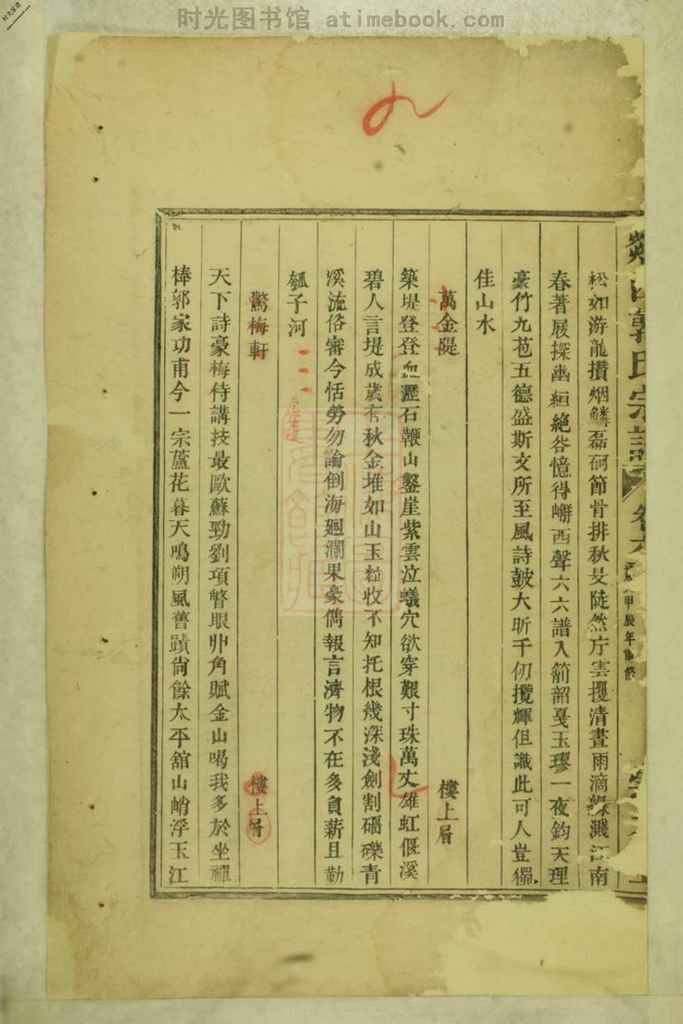 时光图书馆 atimebook.com
郭氏宗譜
甲辰年
松如游龍攢烟鱗磊砢節骨排秋旻陡然庁雲擾清晝雨滴綠濺江南
春著屐探幽絕壑憶得嶰西聲六六譜入箭韶戛玉璆一夜鈞天理
豪竹九苞五德盛斯文所至風詩鼓大昕千仞攬輝但識此可人豈獨
佳山水
萬金隄 樓上層
築堤登登血瀝石鞭山鑿崖紫雲泣蟻穴欲穿艱寸珠萬丈雄虹偃溪
碧人言堤成歲有秋金堆如山玉粒收不知托根幾深淺劍割礪礫青
溪流俗審今恬勞勿論倒海廻瀾果豪儁報言濟物不在多負薪且勤
瓠子河
鶩梅軒 樓上層
天下詩豪梅待講技最歐蘇勁劉項瞥眼丱角賦金山喝我多於坐禪
棒郭家功甫今一宗蘆花暮天鳴朔風舊蹟尚餘太平舘山峭浮玉江